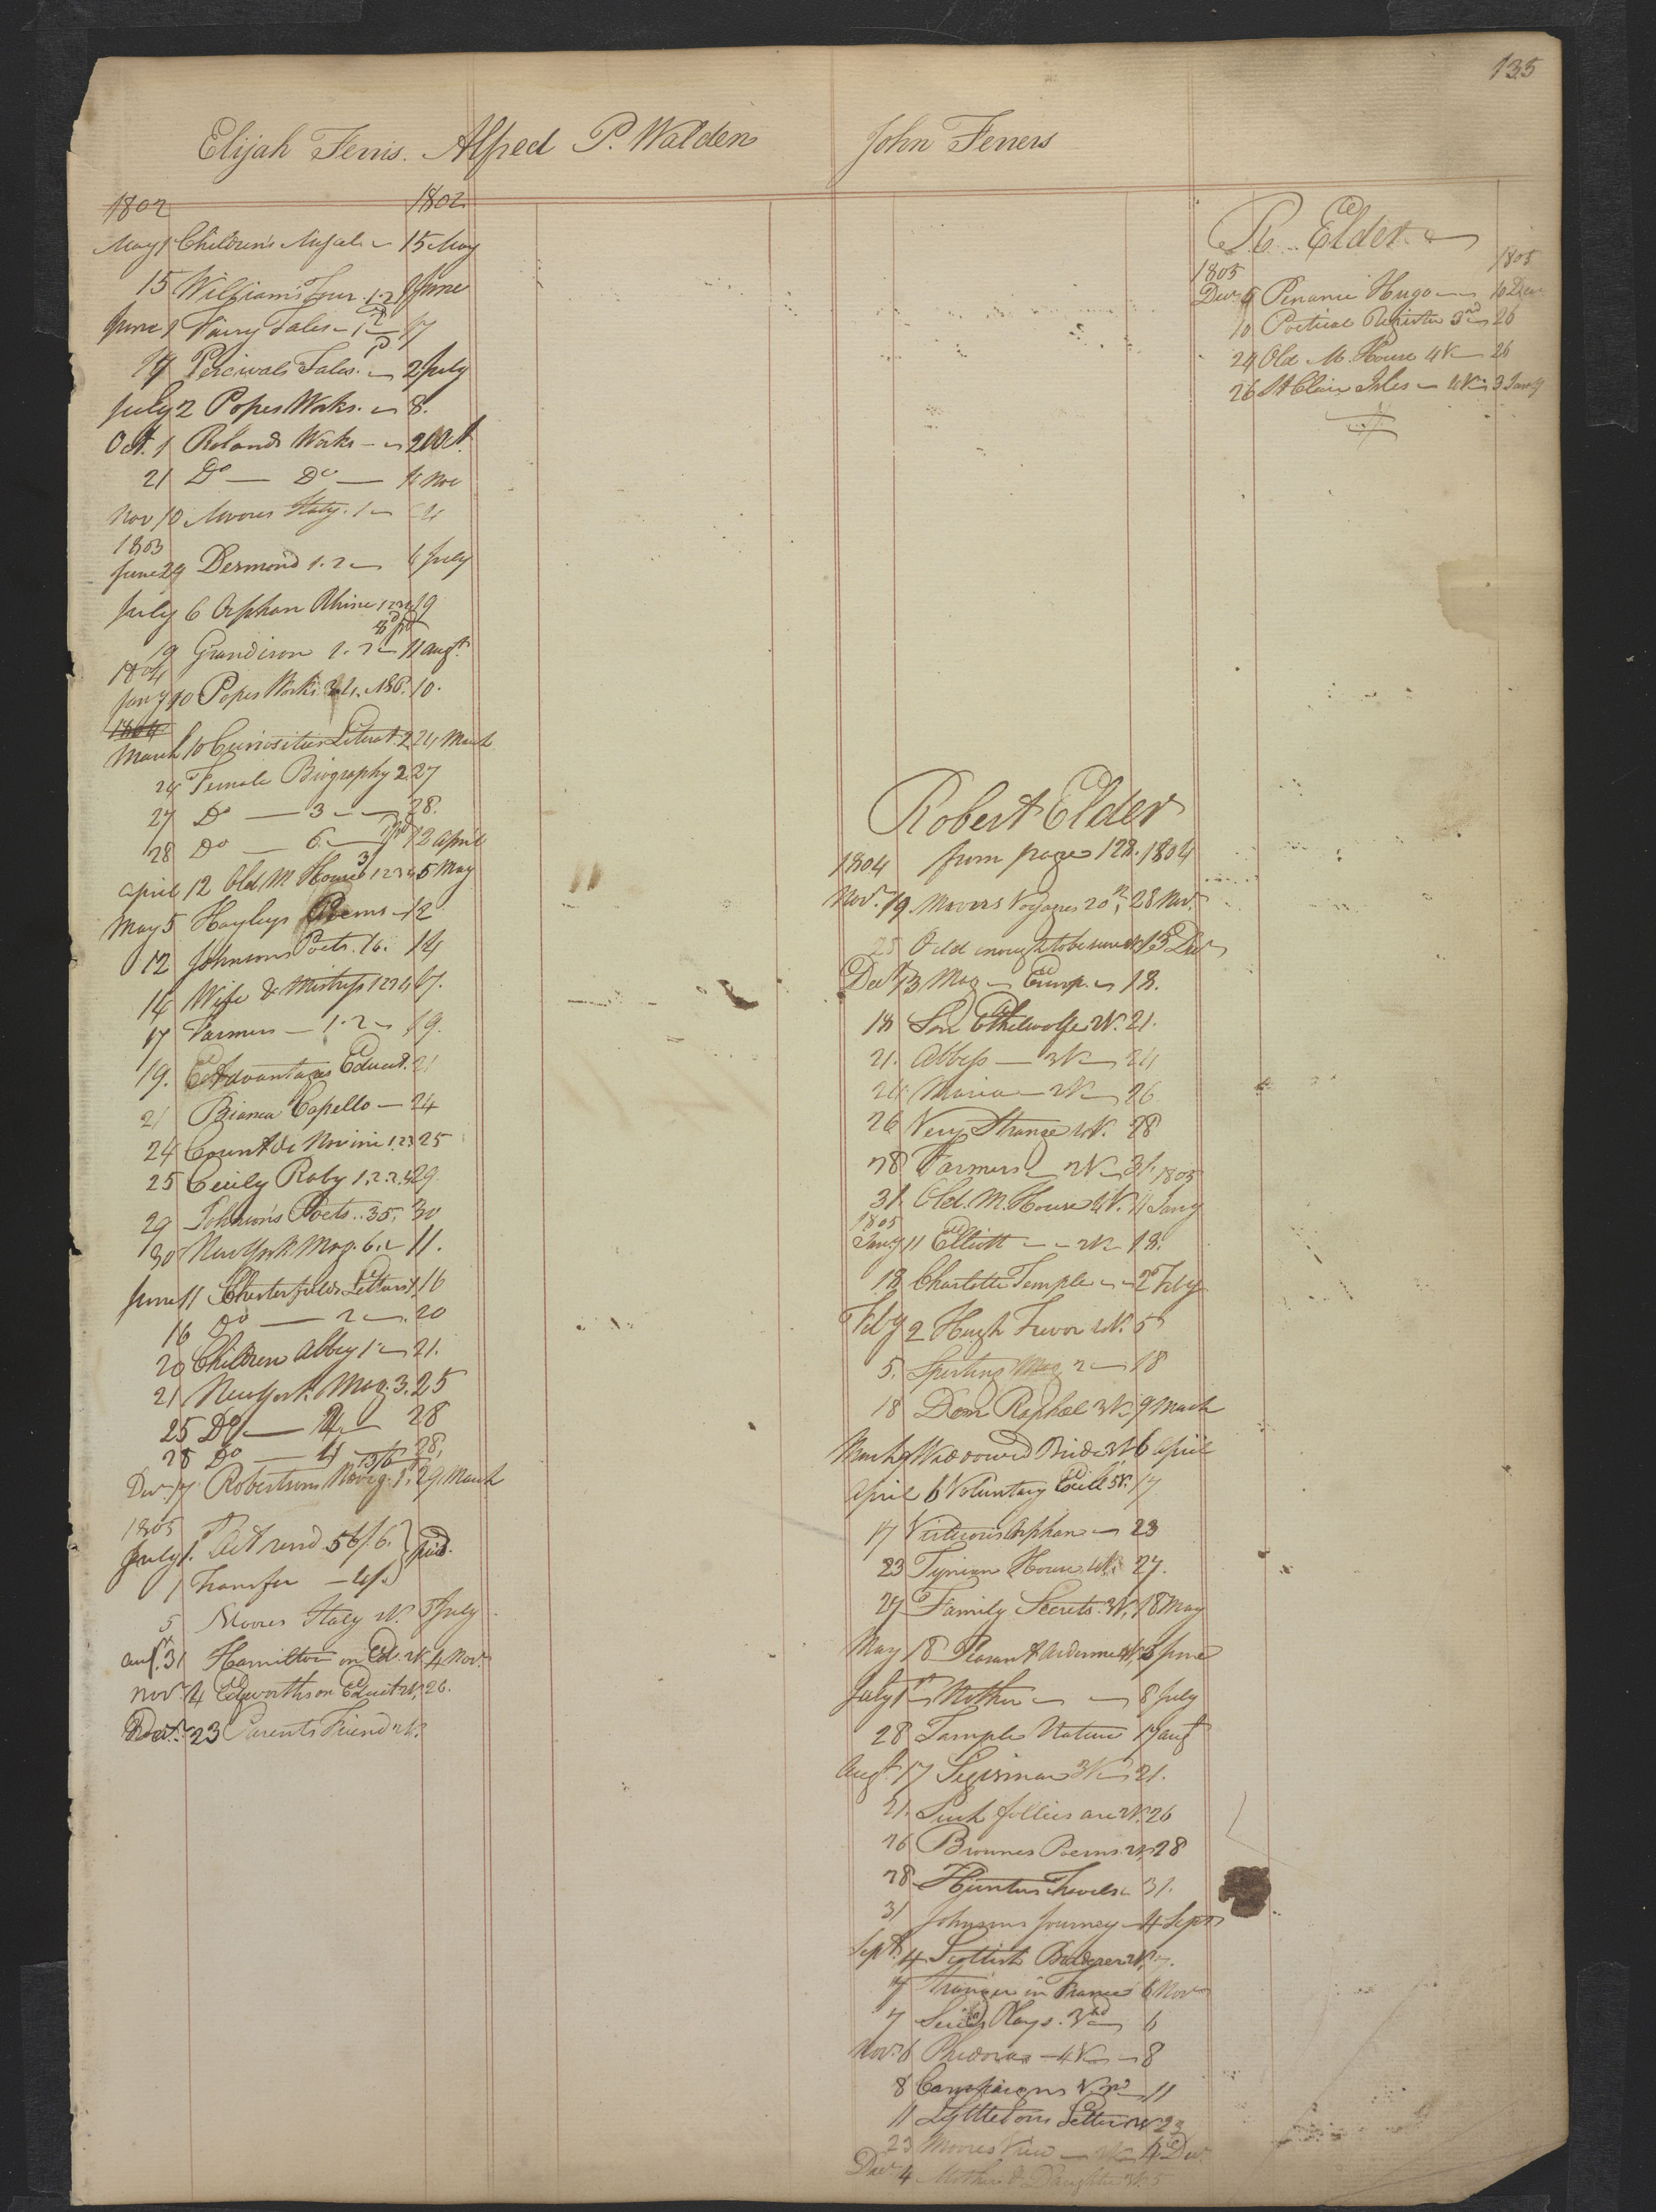 135
Elijah Ferris. Alfred P. Walden
John Ferrers
1802 1802
May 1 Children's 15 May
15 Williams Tour 1.2 1 June
June 1 Fairy Tales 1 17
17 Percivals Tales. 2 July
July 2 Popes Works. 8.
Oct. 1 Rolands Works 21 Oct.
21 Do Do Nov
Nov 10 Moores Italy. 1
1803
June 29 Desmond 1.2 6 July
July 6 Orphan Rhine 1234 19
19 Grandison 1.2 11 Augt.
1804
Jany 10 Popes Works 10.
1804
March 10 Curiosities Literat. 2 24 March
24 Female Biography 2 27
27 Do 3 28.
28 Do 6 12 April
April 12 Old M House 1234 5 May
May 5 Hayleys Poems 12
12 Johnsons Poets. 16. 14
14 Wife & Mistress 1234 17.
17 Farmers 1.2 19.
19. Advantages Educat. 21
21 Bianca Capello 24
24 Count di Novini 1.2.3 25
25 Cecily Raby 1.2.3.4 29.
29 Johnson's Poets.. 35. 30
30 New York Mag. 6. 11.
June 11 Chesterfields Letters 1 16
16 Do 2 20
20 Children Abbey 1 21.
21 New York Mag. 3. 25
25 Do 28
28 Do 4 28.
Decr. 17 Robertsons 1. 29 March
1805
July 1. Act rend 56/6. } paid.
1 Transfer 4/.
5 Moores Italy 5 July
Augt. 31 Hamilton on Ed. 2V. 4 Nov.
Nov. 4 Edgworths on Educt. 2V. 26.
23 Parents Friend 2V.
Robert Elder
1804 from page 128. 1804
Nov. 19. Mavors Voyages 20 28 Nov.
25 Odd enough to be sure 13 Decr
Decr 13 Mag Europ. 18.
18 Son Ethelwolfe 2V. 21.
21. Abbess 3V 24
24 Maria 2V 26
26 Very Strange 2V. 28
28 Farmers 2V 31. 1805
31. Old. M. House 4V. 11 Jany
1805
Jany 11 Elliott 2V 18.
18 Charlotte Temple 2 Feby
Feby 2 Hugh Trevor 5
5. Sporting Mag 2 18
18 Don Raphael 3V. 9 March
March 9 Widowed Bride 3V. 6 April
April 6 Voluntary Exile 5V. 17
17 Virtuous Orphan 23
23 Tynian House 27.
27 Family Secrets. 18 May
May 18 Peasant Ardenne 4V. June
July 1st Mother 8 July
28 Temple Nature 17 Augt
Augt 17 Sigismar 3V 21.
21. Such follies are 2V. 26
26 Brownes Poems 28
28 Hunters Travels 31.
31 Johnsons Journey 4 Septr
Sept. 4 Scottish 2V. 7.
7 Stranger in France 6 Nov
7 Series Plays. 3rd 6
Nov. 6 Phedora 4V 8
8 Campaigns 11
11 Lyttletons Letters 23
23 Moores View 4 Decr
Decr 4 Mother & Daughter 3V. 5
R. Elder
1805 1805
Decr. 5 Romance Hugo 10 Decr
10 Poetical Register 3rd 26
24 Old M. House 4V 26
26 St Clair Isles 4V 3 Jany